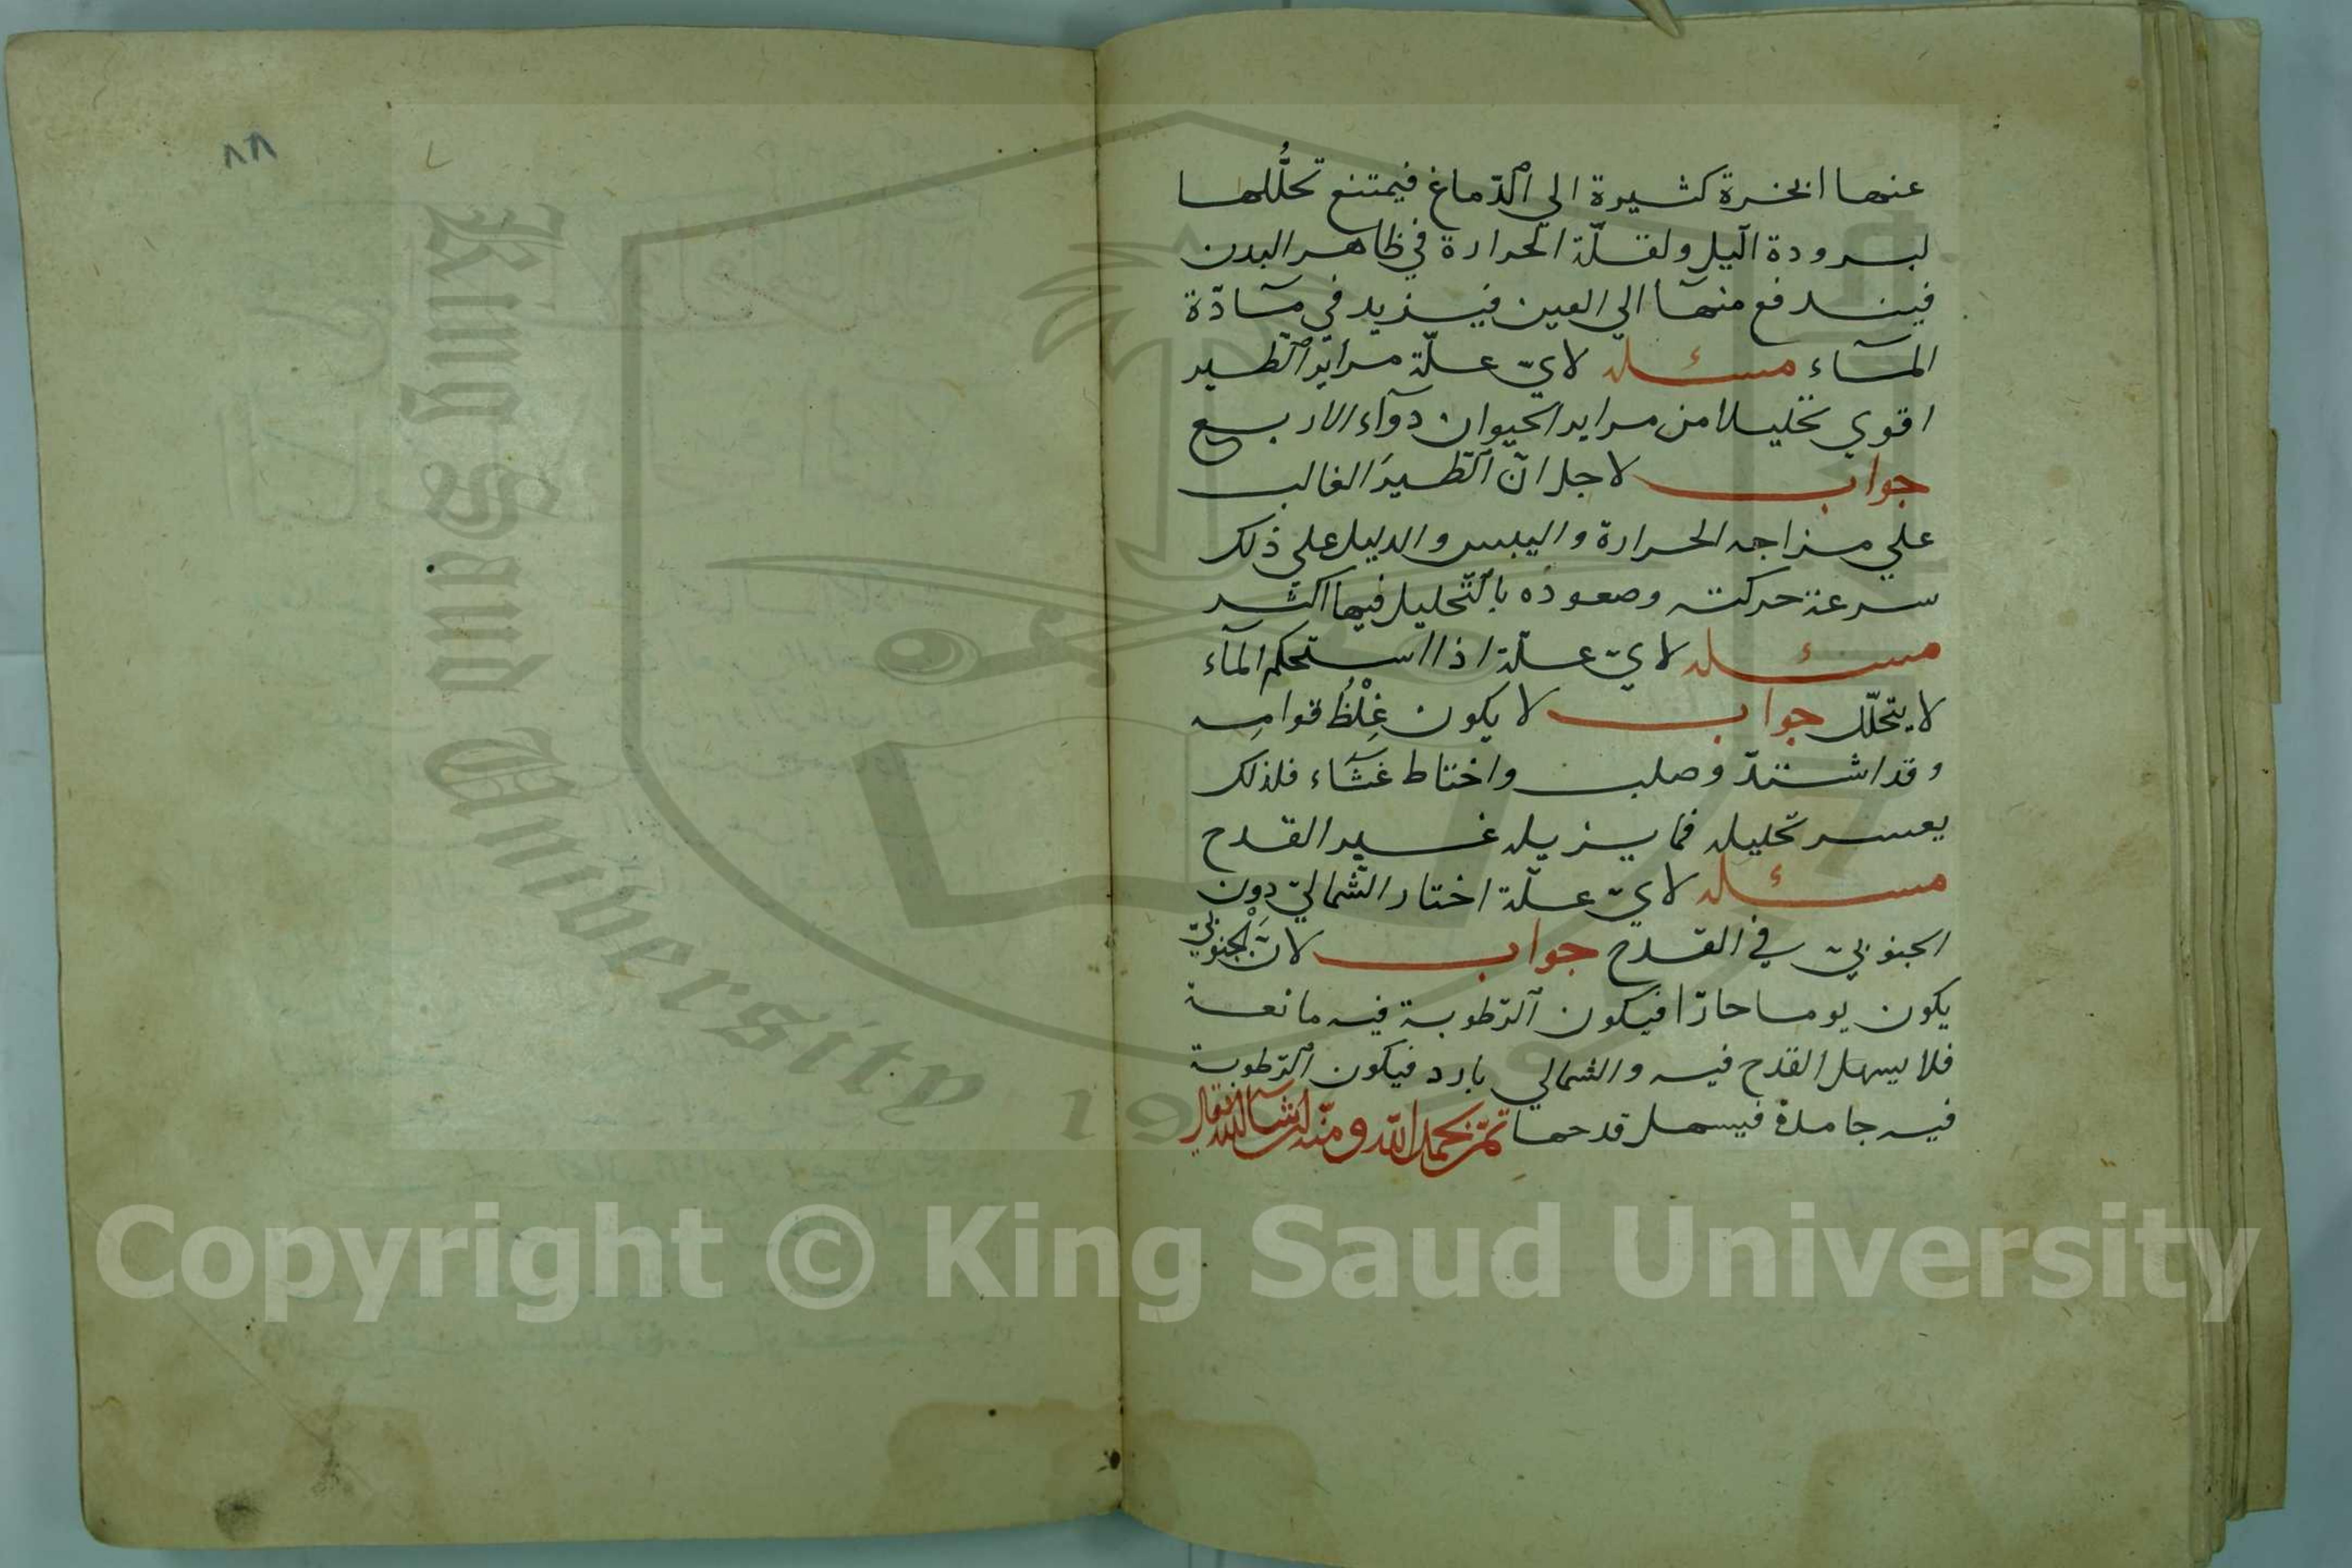 عنها ابخرة كثيرة الي الدّماغ فيمتنع تحلُّلها
لبرودة الّيل ولقلّة الحرارة في ظاهر البدن
فيندفع منها الي العين فيزيد في مآدّة
المآء مسئله لايّ علّة مراير الطّير
اقوي تحليلا من مراير الحيوان دوآء الاربع
جواب لاجل انّ الطّيرَ الغالب
علي مزاجه الحرارة واليبس والدليل علي ذلك
سرعة حركته وصعوده بالتّحليل فيها اكثر
مسئله لايّ علّة اذا استحكم المآء
لا يتحلّل جواب لا يكون غِلْظُ قوامِه
وقد اشتدّ وصلب واختاط غشَآء فلذلك
يعسر تحليله فما يزيله غير القدح
مسئله لايّ علّة اختار الشّماليّ دون
الجنوبيّ في القدح جواب لانّ الجنوبيّ
يكون يوما حارّا فيكون الرّطوبة فيه مانعة
فلا يسهل القدح فيه والشمالي بارد فيكون الرّطوبة
فيه جامدة فيسهل قدحها تمّ بحمد اللّه ومنّه
٨٨
King Saud University
19
Copyright © King Saud University